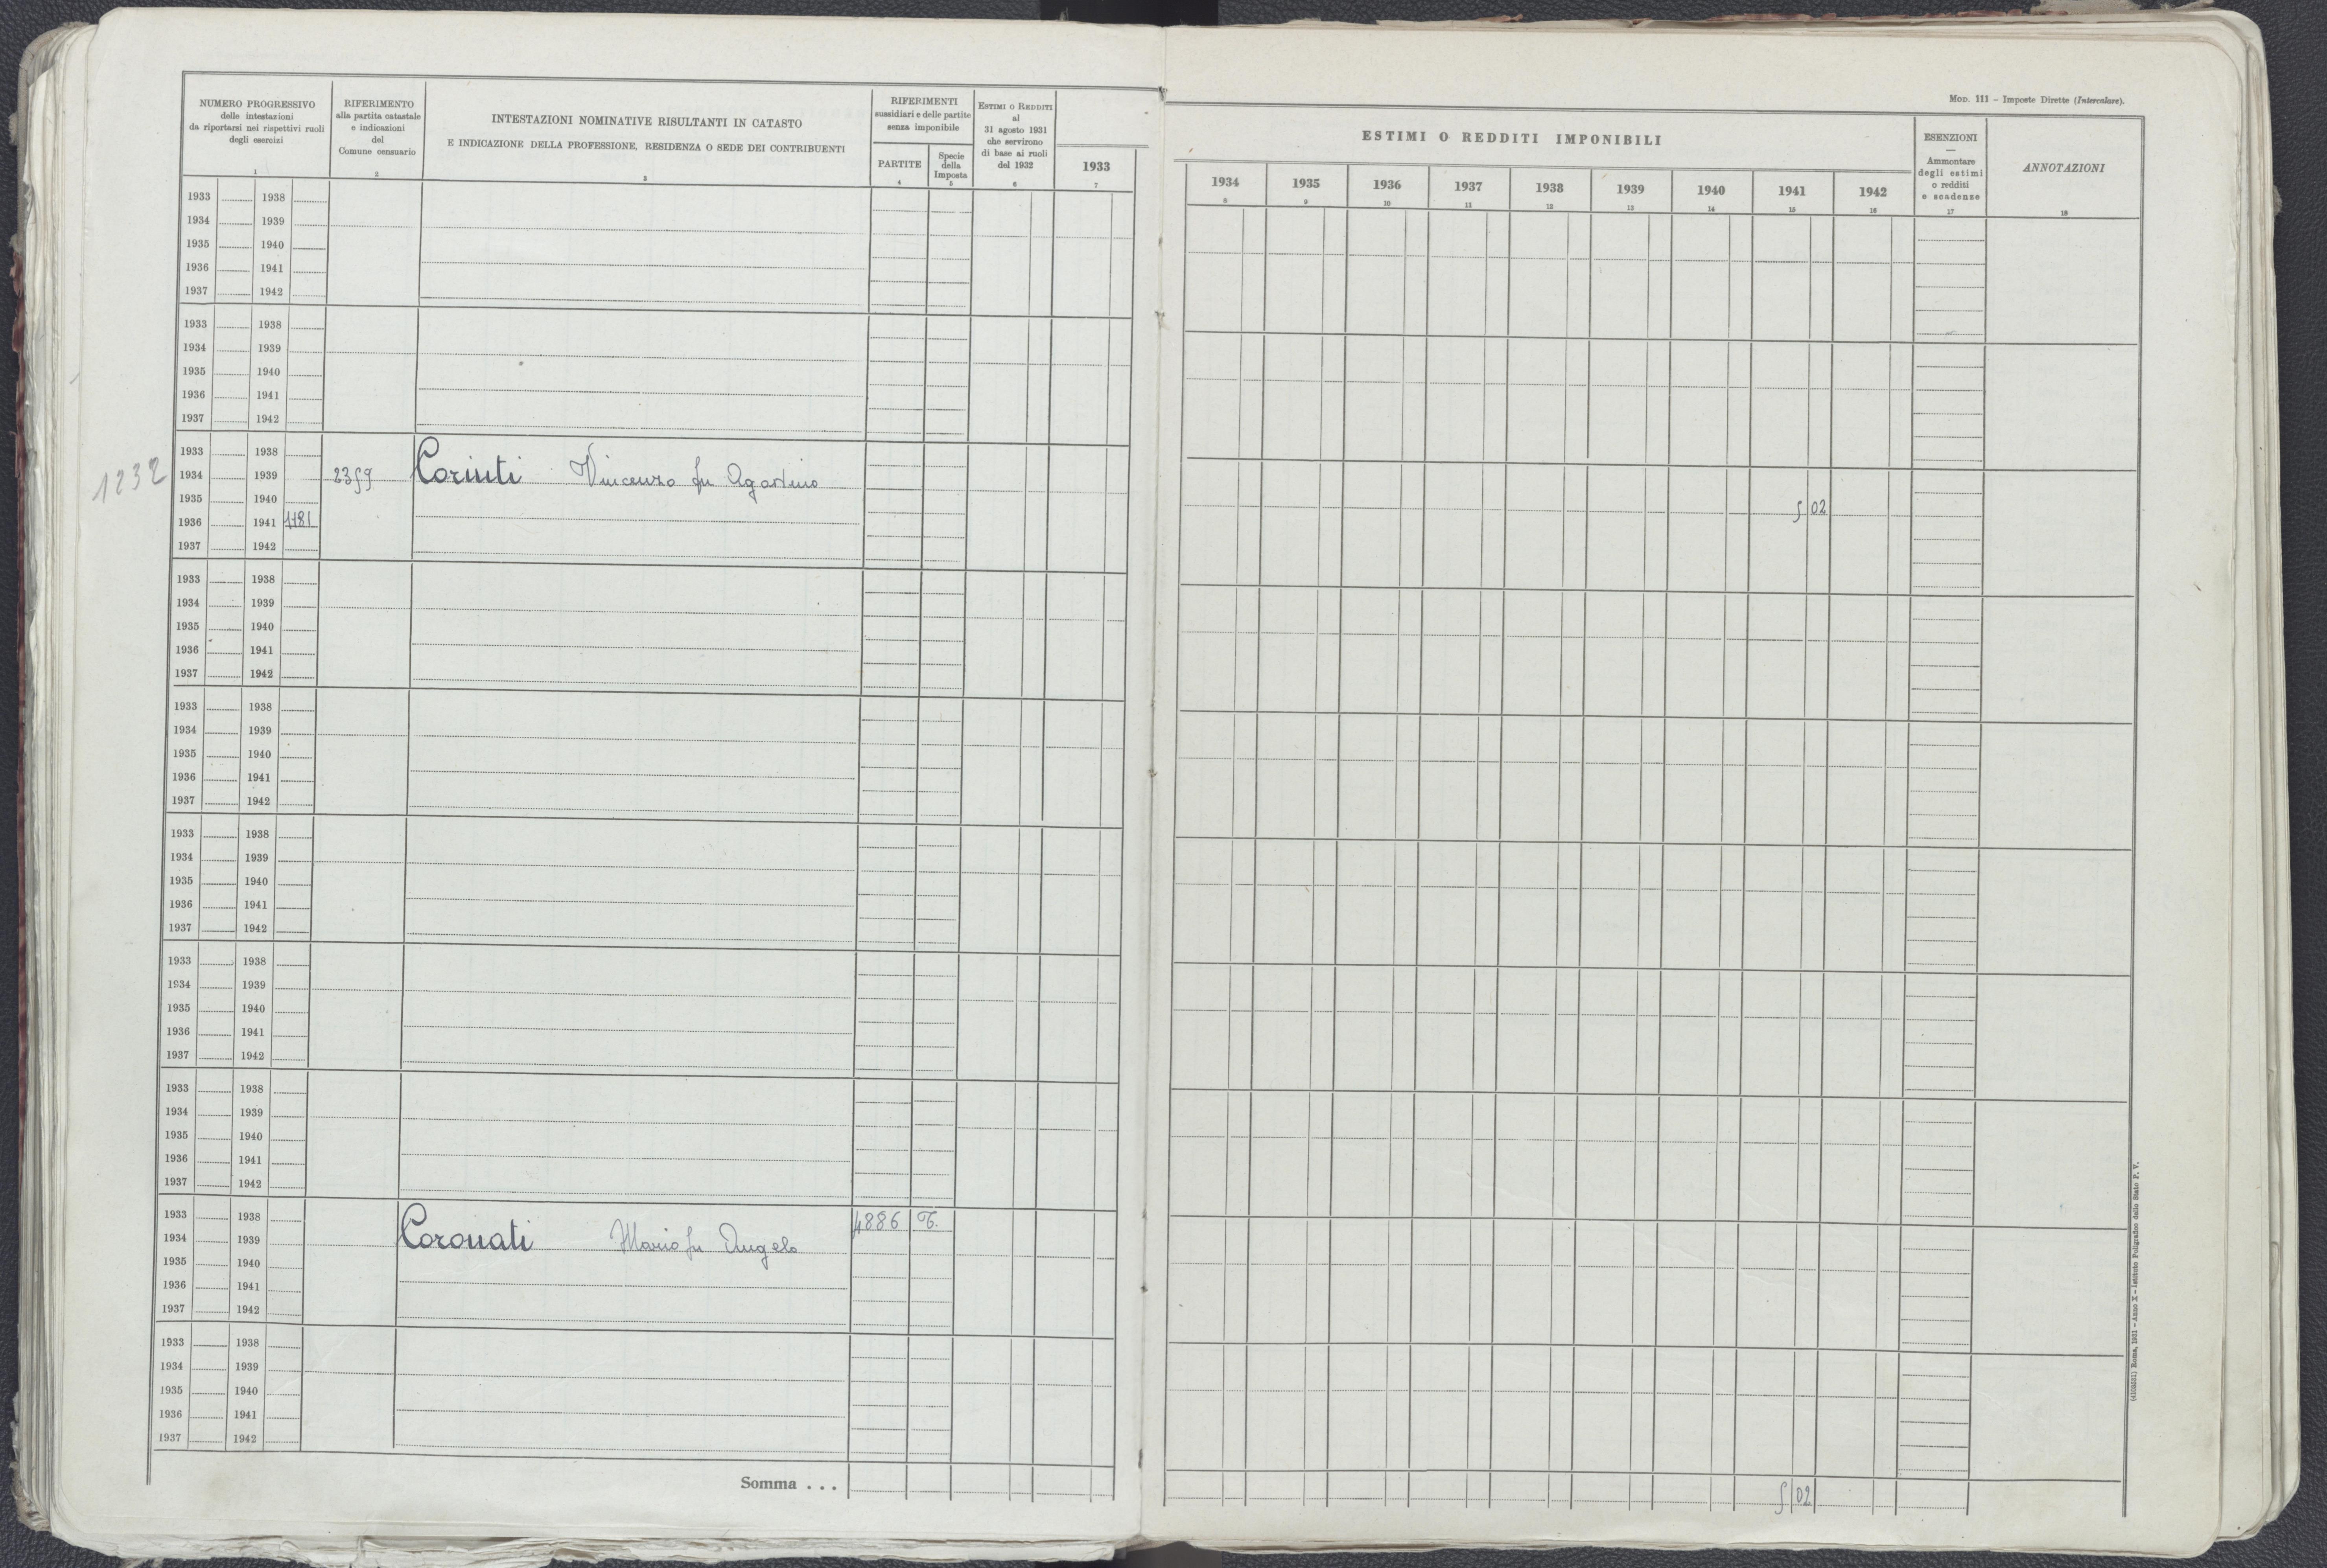 NUMERO PROGRESSIVO
delle intestazioni
da riportarsi nei rispettivi ruoli
degli esercizi
1
RIFERIMENTO
alla partita catastale
e indicazioni
del
Comune censuario
2
INTESTAZIONI NOMINATIVE RISULTANTI IN CATASTO
E INDICAZIONE DELLA PROFESSIONE, RESIDENZA O SEDE DEI CONTRIBUENTI
3
RIFERIMENTI
sussidiari e delle partite
senza imponibile
PARTITE
4
Specie
della
Imposta
5
ESTIMI O REDDITI
al
31 agosto 1931
che servirono
di base ai ruoli
del 1932
6
1933
7
MOD. 111 – Imposte Dirette (Intercalare).
ESTIMI O REDDITI IMPONIBILI
1934 1935 1936 1937 1938 1939 1940 1941 1942
8 9 10 11 12 13 14 15 16
ESENZIONI
—
Ammontare
degli estimi
o redditi
e scadenze
17
ANNOTAZIONI
18
1933 1938
1934 1939
1935 1940
1936 1941
1937 1942
1933 1938
1934 1939
1935 1940
1936 1941
1937 1942
1933 1938
1232 1934 1939 2359 Coriuti Vincenzo fu Agostino
1935 1940
1936 1941 1181 5 02
1937 1942
1933 1938
1934 1939
1935 1940
1936 1941
1937 1942
1933 1938
1934 1939
1935 1940
1936 1941
1937 1942
1933 1938
1934 1939
1935 1940
1936 1941
1937 1942
1933 1938
1934 1939
1935 1940
1936 1941
1937 1942
1933 1938
1934 1939
1935 1940
1936 1941
1937 1942
1933 1938 4886 T.
1934 1939 Coronati Mario fu Angelo
1935 1940
1936 1941
1937 1942
1933 1938
1934 1939
1935 1940
1936 1941
1937 1942
Somma . . . 5 02
Roma, 1931 – Anno X – Istituto Poligrafico dello Stato P. V.